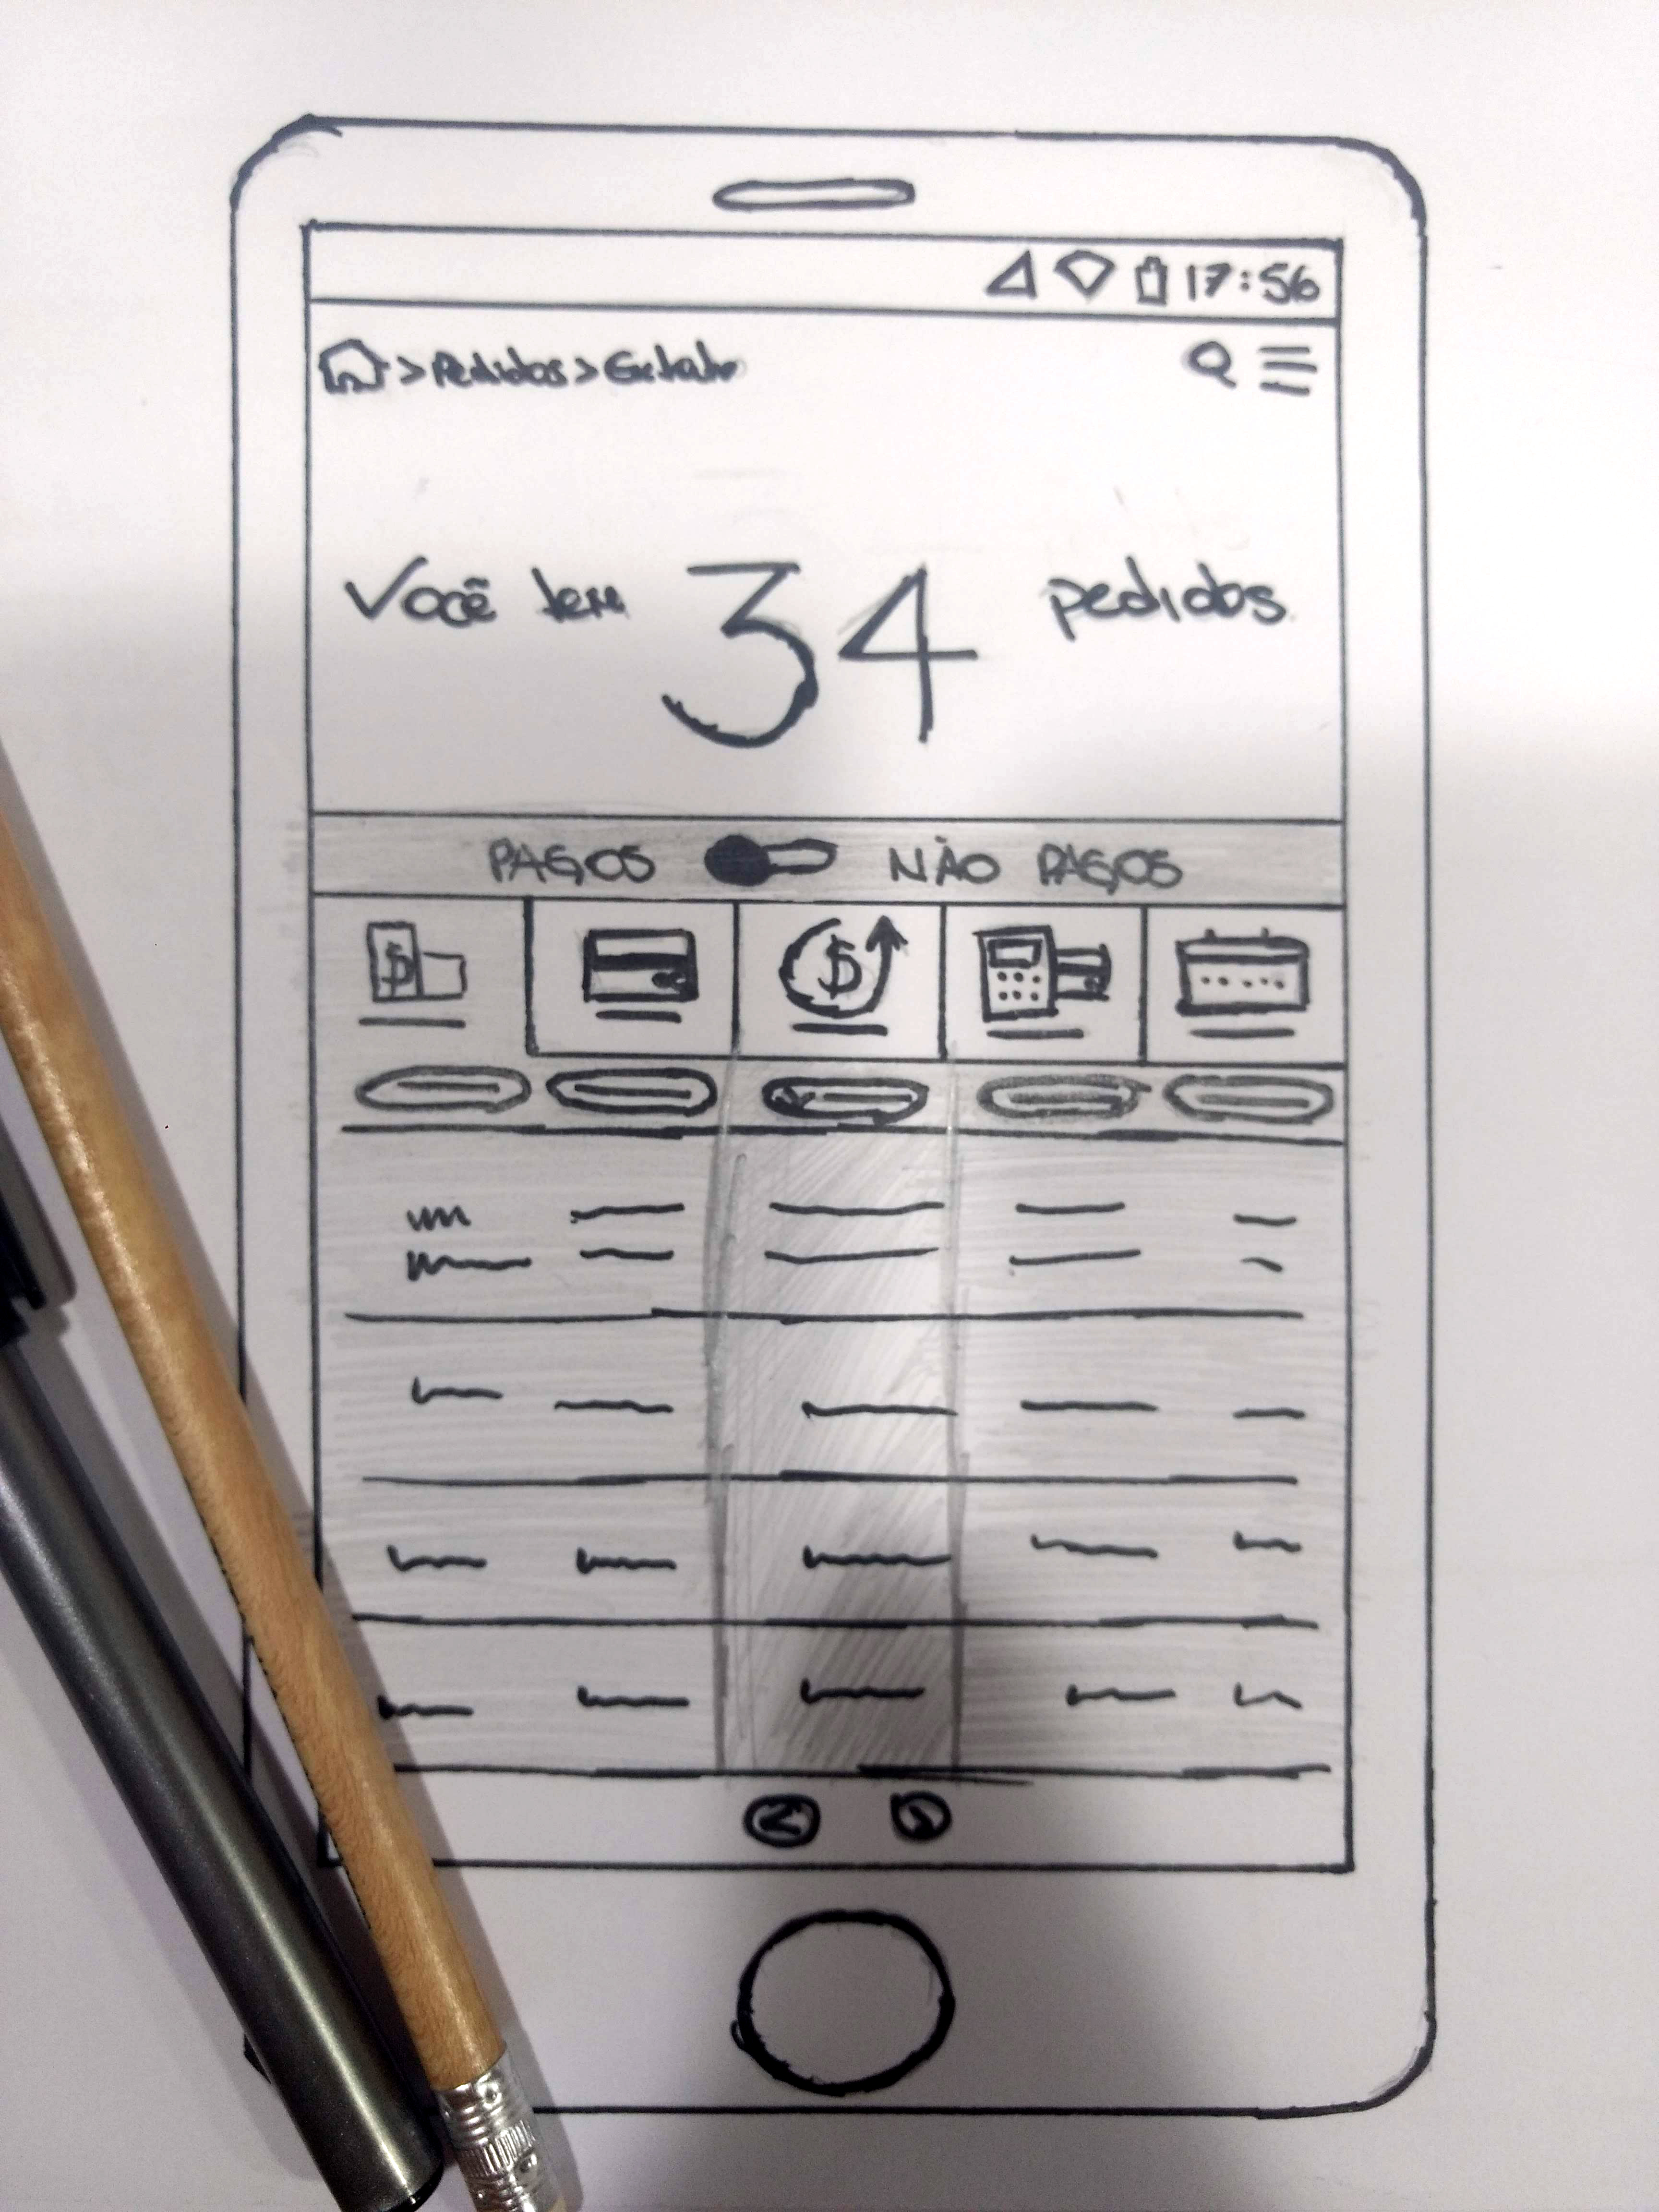 17:56
> Pedidos > Extrato
Você tem 34 pedidos
PAGOS NÃO PAGOS
$ $